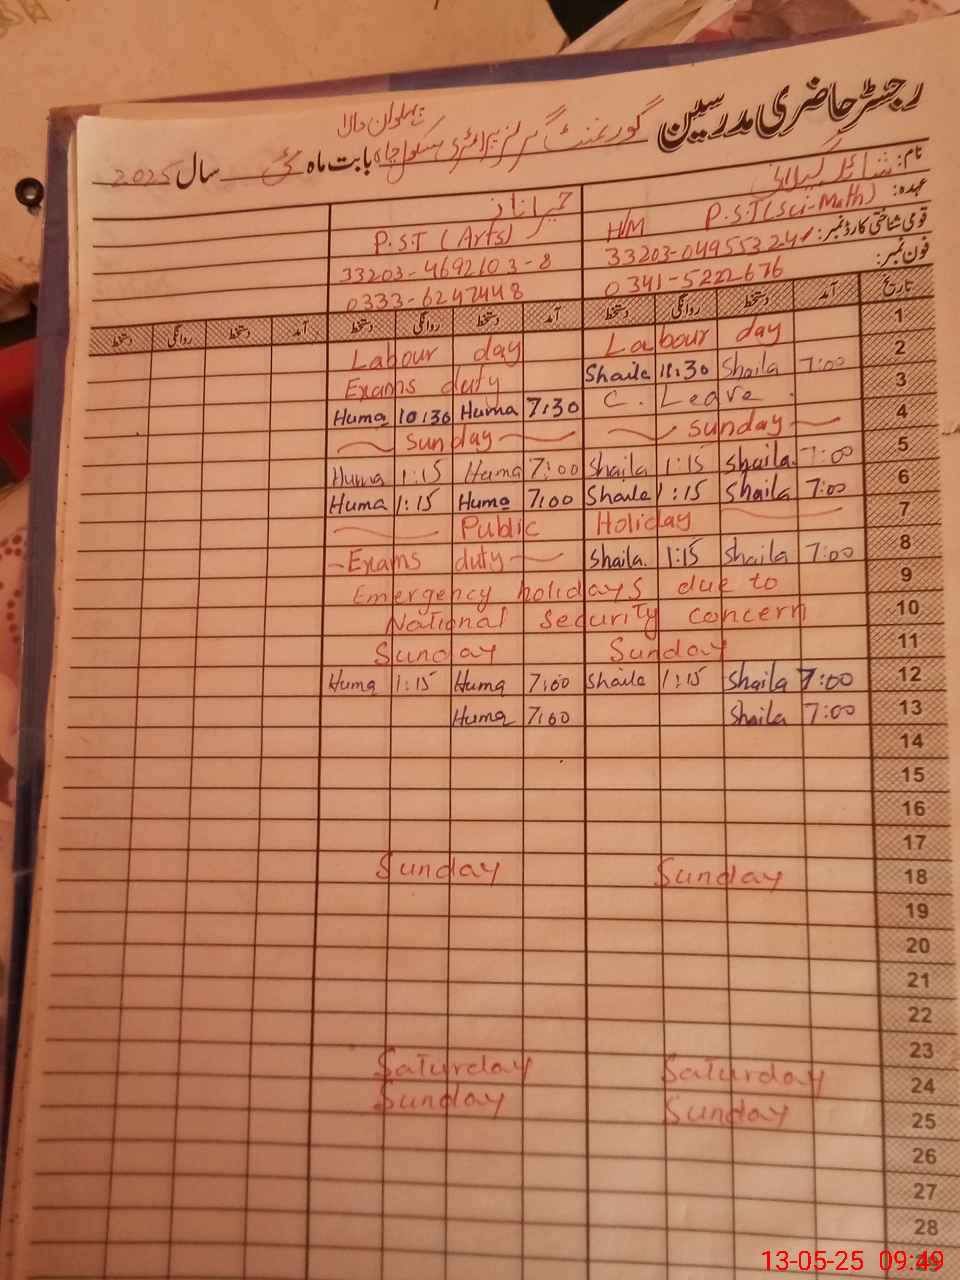 رجسٹر حاضری مدرسین گورنمنٹ گرلز پرائمری سکول چاہ پہلوان والا بابت ماہ مئی سال 2025
نام: شائلہ گیلانی حمیرا ناز
عہدہ: P.S.T (Sci-Math) H/M P.S.T (Arts)
قومی شناختی کارڈ نمبر: 33203-0495532-4 33203-4692103-8
فون نمبر: 0341-5222676 0333-6247448
تاریخ آمد دستخط روانگی دستخط آمد دستخط روانگی دستخط آمد دستخط روانگی دستخط
1 Labour day Labour day
2 7:00 Shaila 11:30 Shaila Exams duty
3 C. Leave 7:30 Huma 10:30 Huma
4 Sunday Sunday
5 7:00 Shaila 1:15 Shaila 7:00 Huma 1:15 Huma
6 7:00 Shaila 1:15 Shaila 7:00 Huma 1:15 Huma
7 Public Holiday
8 7:00 Shaila 1:15 Shaila Exams duty
9 Emergency holidays due to
10 National Security concern
11 Sunday Sunday
12 7:00 Shaila 1:15 Shaila 7:00 Huma 1:15 Huma
13 7:00 Shaila 7:00 Huma
14
15
16
17
18 Sunday Sunday
19
20
21
22
23
24 Saturday Saturday
25 Sunday Sunday
26
27
28
29
13-05-25 09:49